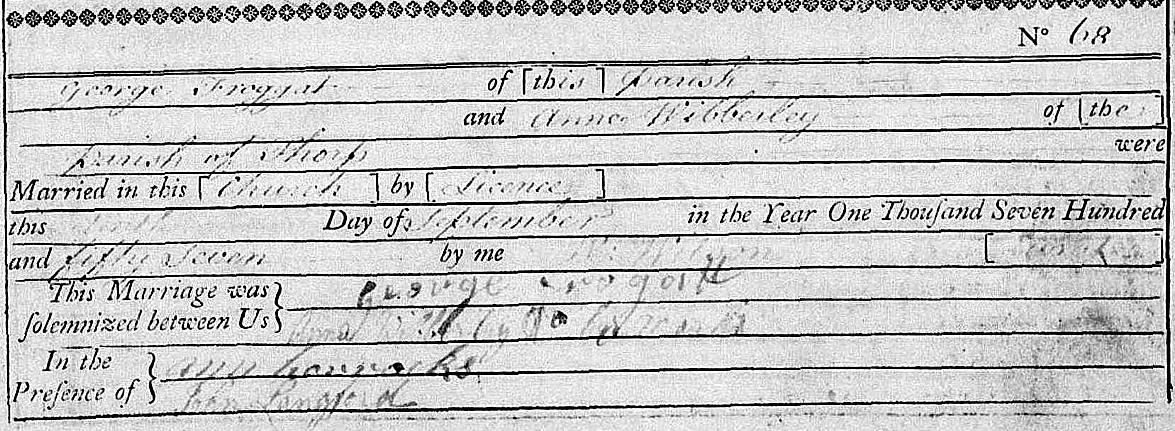 Nº 68
George Froggat of [this] parish
and Anne Wibberley of [the]
parish of Thorp were
Married in this [Church] by [Licence]
this tenth Day of September in the Year One Thouſand Seven Hundred
and fifty Seven by me Wilson [
This Marriage was } George Frogatt
ſolemnized between Us }
In the } ann
Preſence of } Langford